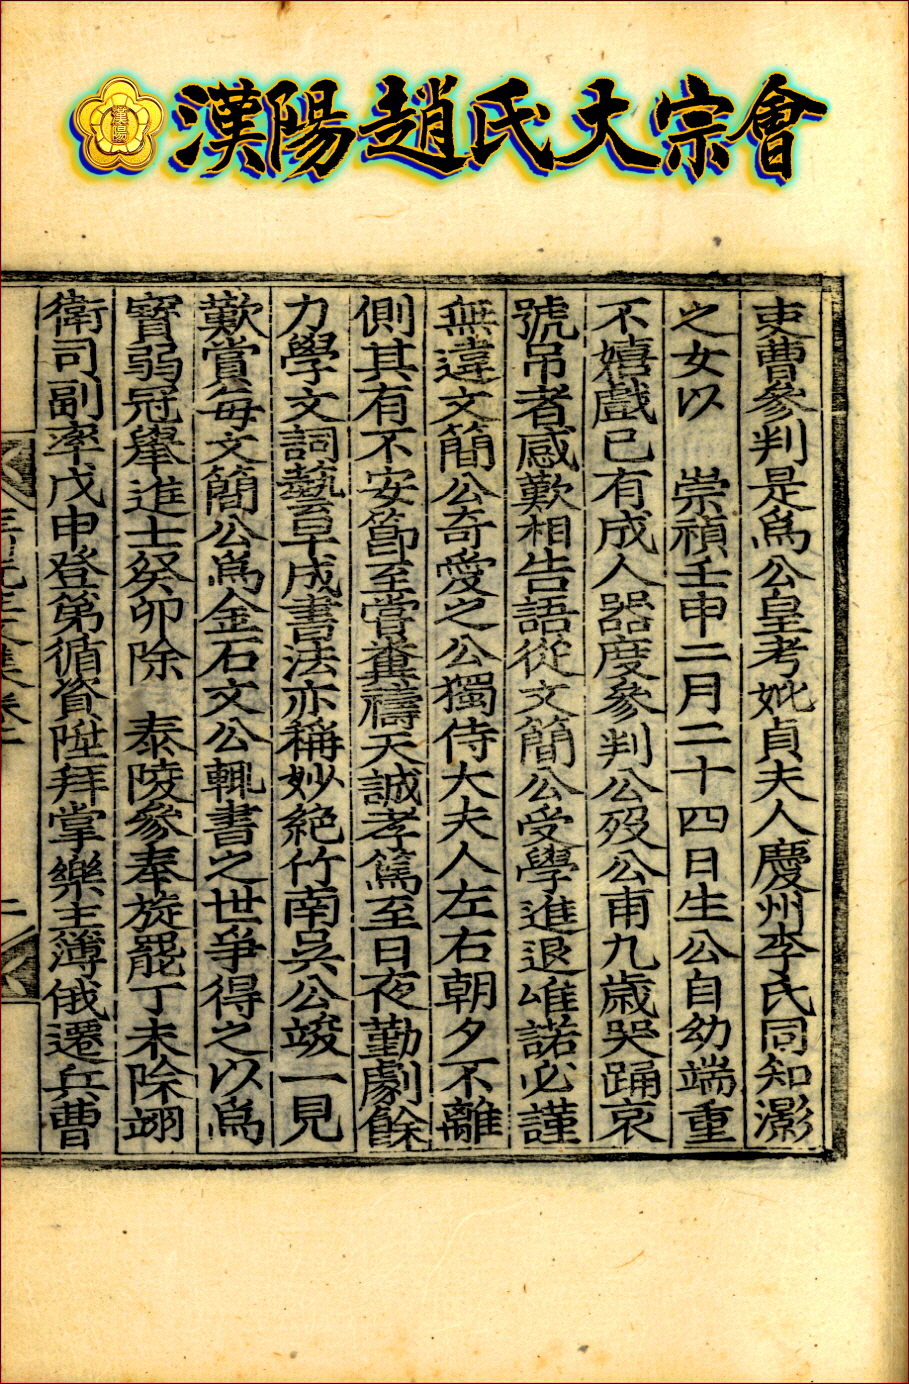 漢陽
漢陽趙氏大宗會
吏曹參判是爲公皇考妣貞夫人慶州李氏同知㵢
之女以 崇禎壬申二月二十四日生公自幼端重
不嬉戲已有成人器度參判公歿公甫九歲哭踊哀
號吊者感歎相告語從文簡公受學進退唯諾必謹
無違文簡公奇愛之公獨侍大夫人左右朝夕不離
側其有不安節至嘗糞禱天誠孝篤至日夜勤劇餘
力學文詞藝早成書法亦稱妙絶竹南吳公竣一見
歎賞每文簡公爲金石文公輒書之世爭得之以爲
寶弱冠擧進士癸卯除 泰陵參奉旋罷丁未除翊
衛司副率戊申登第循資陞拜掌樂主簿俄遷兵曹